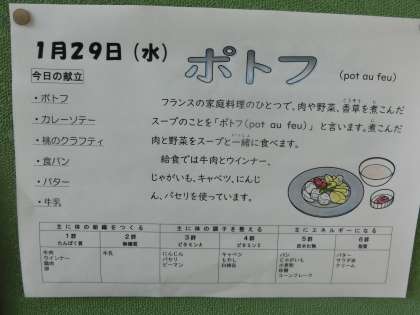 1月29日（水）
ポトフ
(pot au feu)
今日の献立
・ポトフ
・カレーソテー
・桃のクラフティ
・食パン
・バター
・牛乳
フランスの家庭料理のひとつで、肉や野菜、香草を煮こんだ
スープのことを「ポトフ(pot au feu)」と言います。煮こんだ
肉と野菜をスープと一緒に食べます。
給食では牛肉とウインナー、
じゃがいも、キャベツ、にんじ
ん、パセリを使っています。
主に体の組織をつくる 主に体の調子を整える 主にエネルギーになる
1群 2群 3群 4群 5群 6群
たんぱく質 無機質 ビタミンA ビタミンC 炭水化物 脂質
牛肉 牛乳 にんじん キャベツ パン バター
ウインナー パセリ もやし じゃがいも サラダ油
鶏肉 ピーマン 白桃缶 小麦粉 クリーム
卵 砂糖
コーンフレーク